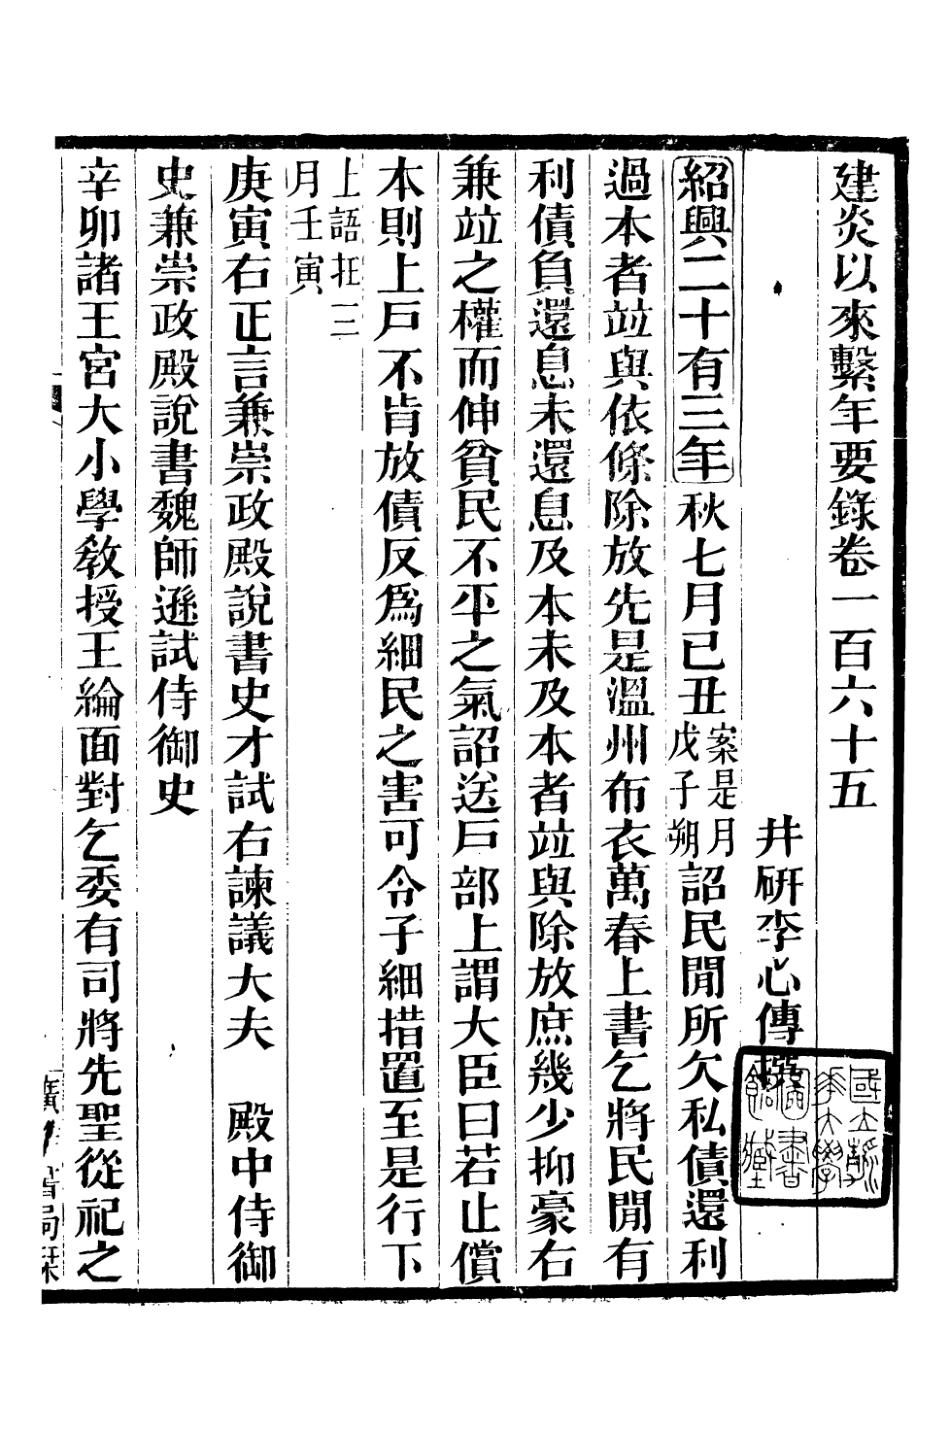 建炎以來繫年要錄卷一百六十五
井研李心傳撰
紹興二十有三年秋七月已丑案是月戊子朔詔民閒所欠私債還利
過本者竝與依條除放先是溫州布衣萬春上書乞將民閒有
利債負還息未還息及本未及本者竝與除放庶幾少抑豪右
兼竝之權而伸貧民不平之氣詔送戶部上謂大臣曰若止償
本則上戶不肯放債反爲細民之害可令子細措置至是行下
上語在三月壬寅
庚寅右正言兼崇政殿說書史才試右諫議大夫　殿中侍御
史兼崇政殿說書魏師遜試侍御史
辛卯諸王宮大小學敎授王綸面對乞委有司將先聖從祀之
國立靜岡大學圖書館藏
廣雅書局栞